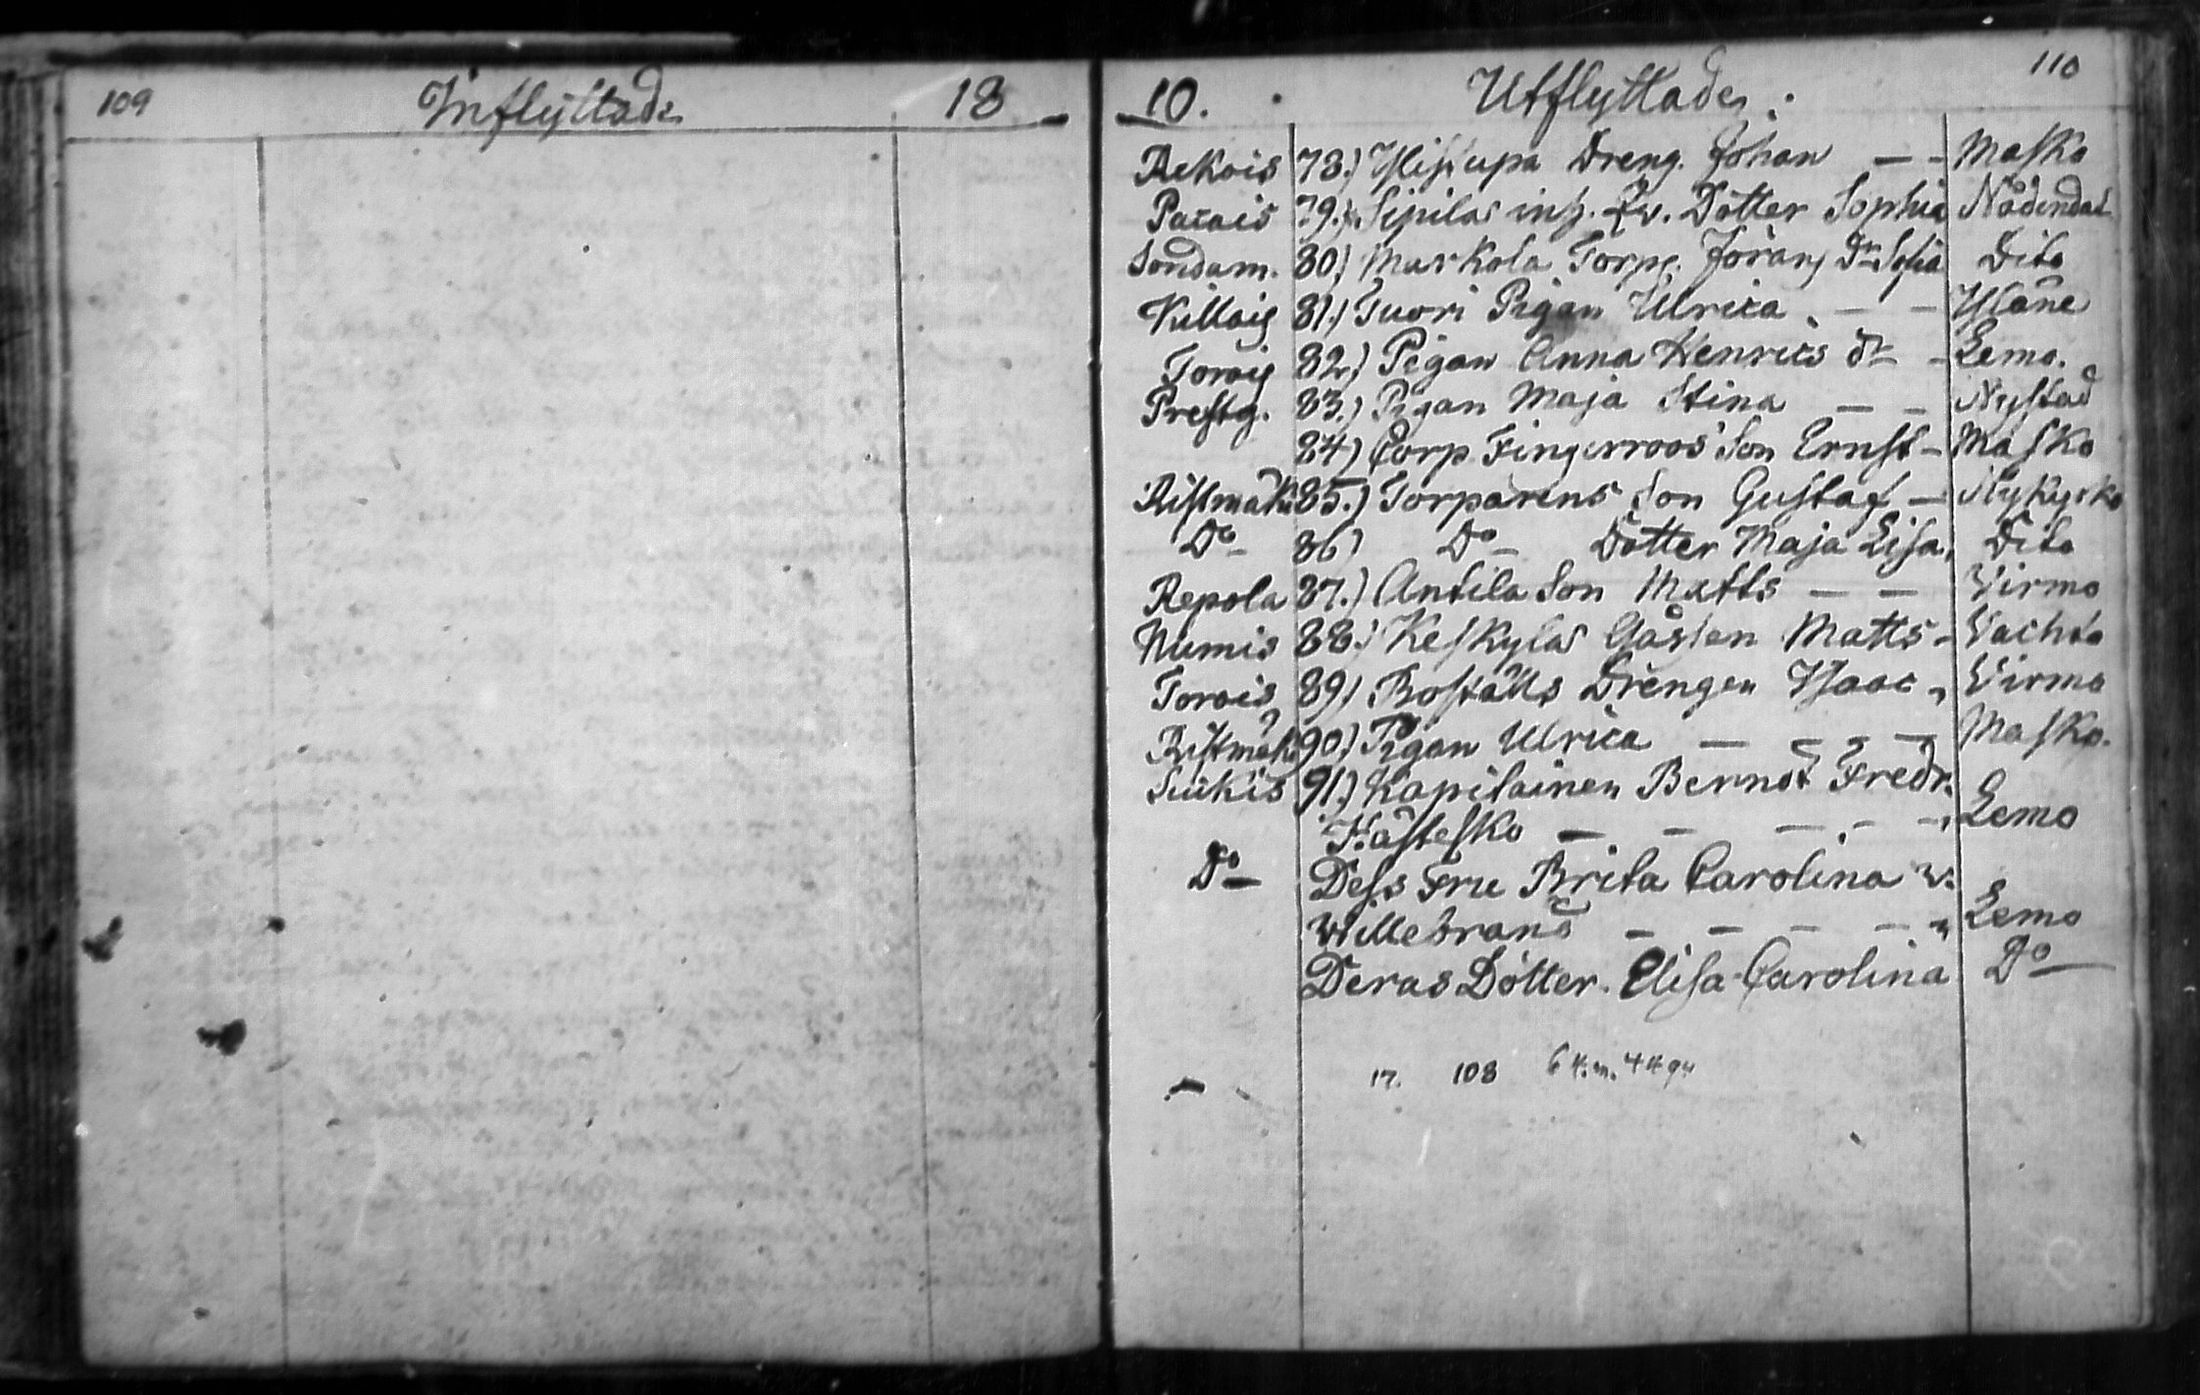 109 Inflyttade 18
10. Utflyttade. 110
Rekois 78.) Isissupa Dreng. Johan — — Masko
Patais 79.) Sipilas inh. Dotter Sophia Nådendal
Sondam. 80) Markola Torpr. Jörans Dr Sofia Dito
Killais 81.) Tuori Pigan Ulrica — — Yläne
Torois 82.) Pigan Anna Henrics dr — Lemo.
Prestg. 83.) Pigan Maja Stina — — Nystad
84) Corp Fingerroos Son Ernst — Masko
Ristmäki 85.) Torparens Son Gustaf — Nykyrko
Do 86) Do Dotter Maja Lisa, Dito
Repola 87.) Antila Son Matts — — Virmo
Numis 88.) Keskylas Gåsten Matts — Vachto
Torois 89) Boställs Drengen Isaac „ Virmo
Ristmäki 90) Pigan Ulrica — — — — Masko.
Suikis 91.) Kapitainen Berndt Fredr.
Hästesko — — — — — Lemo
Do Dess Fru Brita Carolina v.
Willebrand — — — — „ Lemo
Deras Dotter. Elisa Carolina Do
17. 108